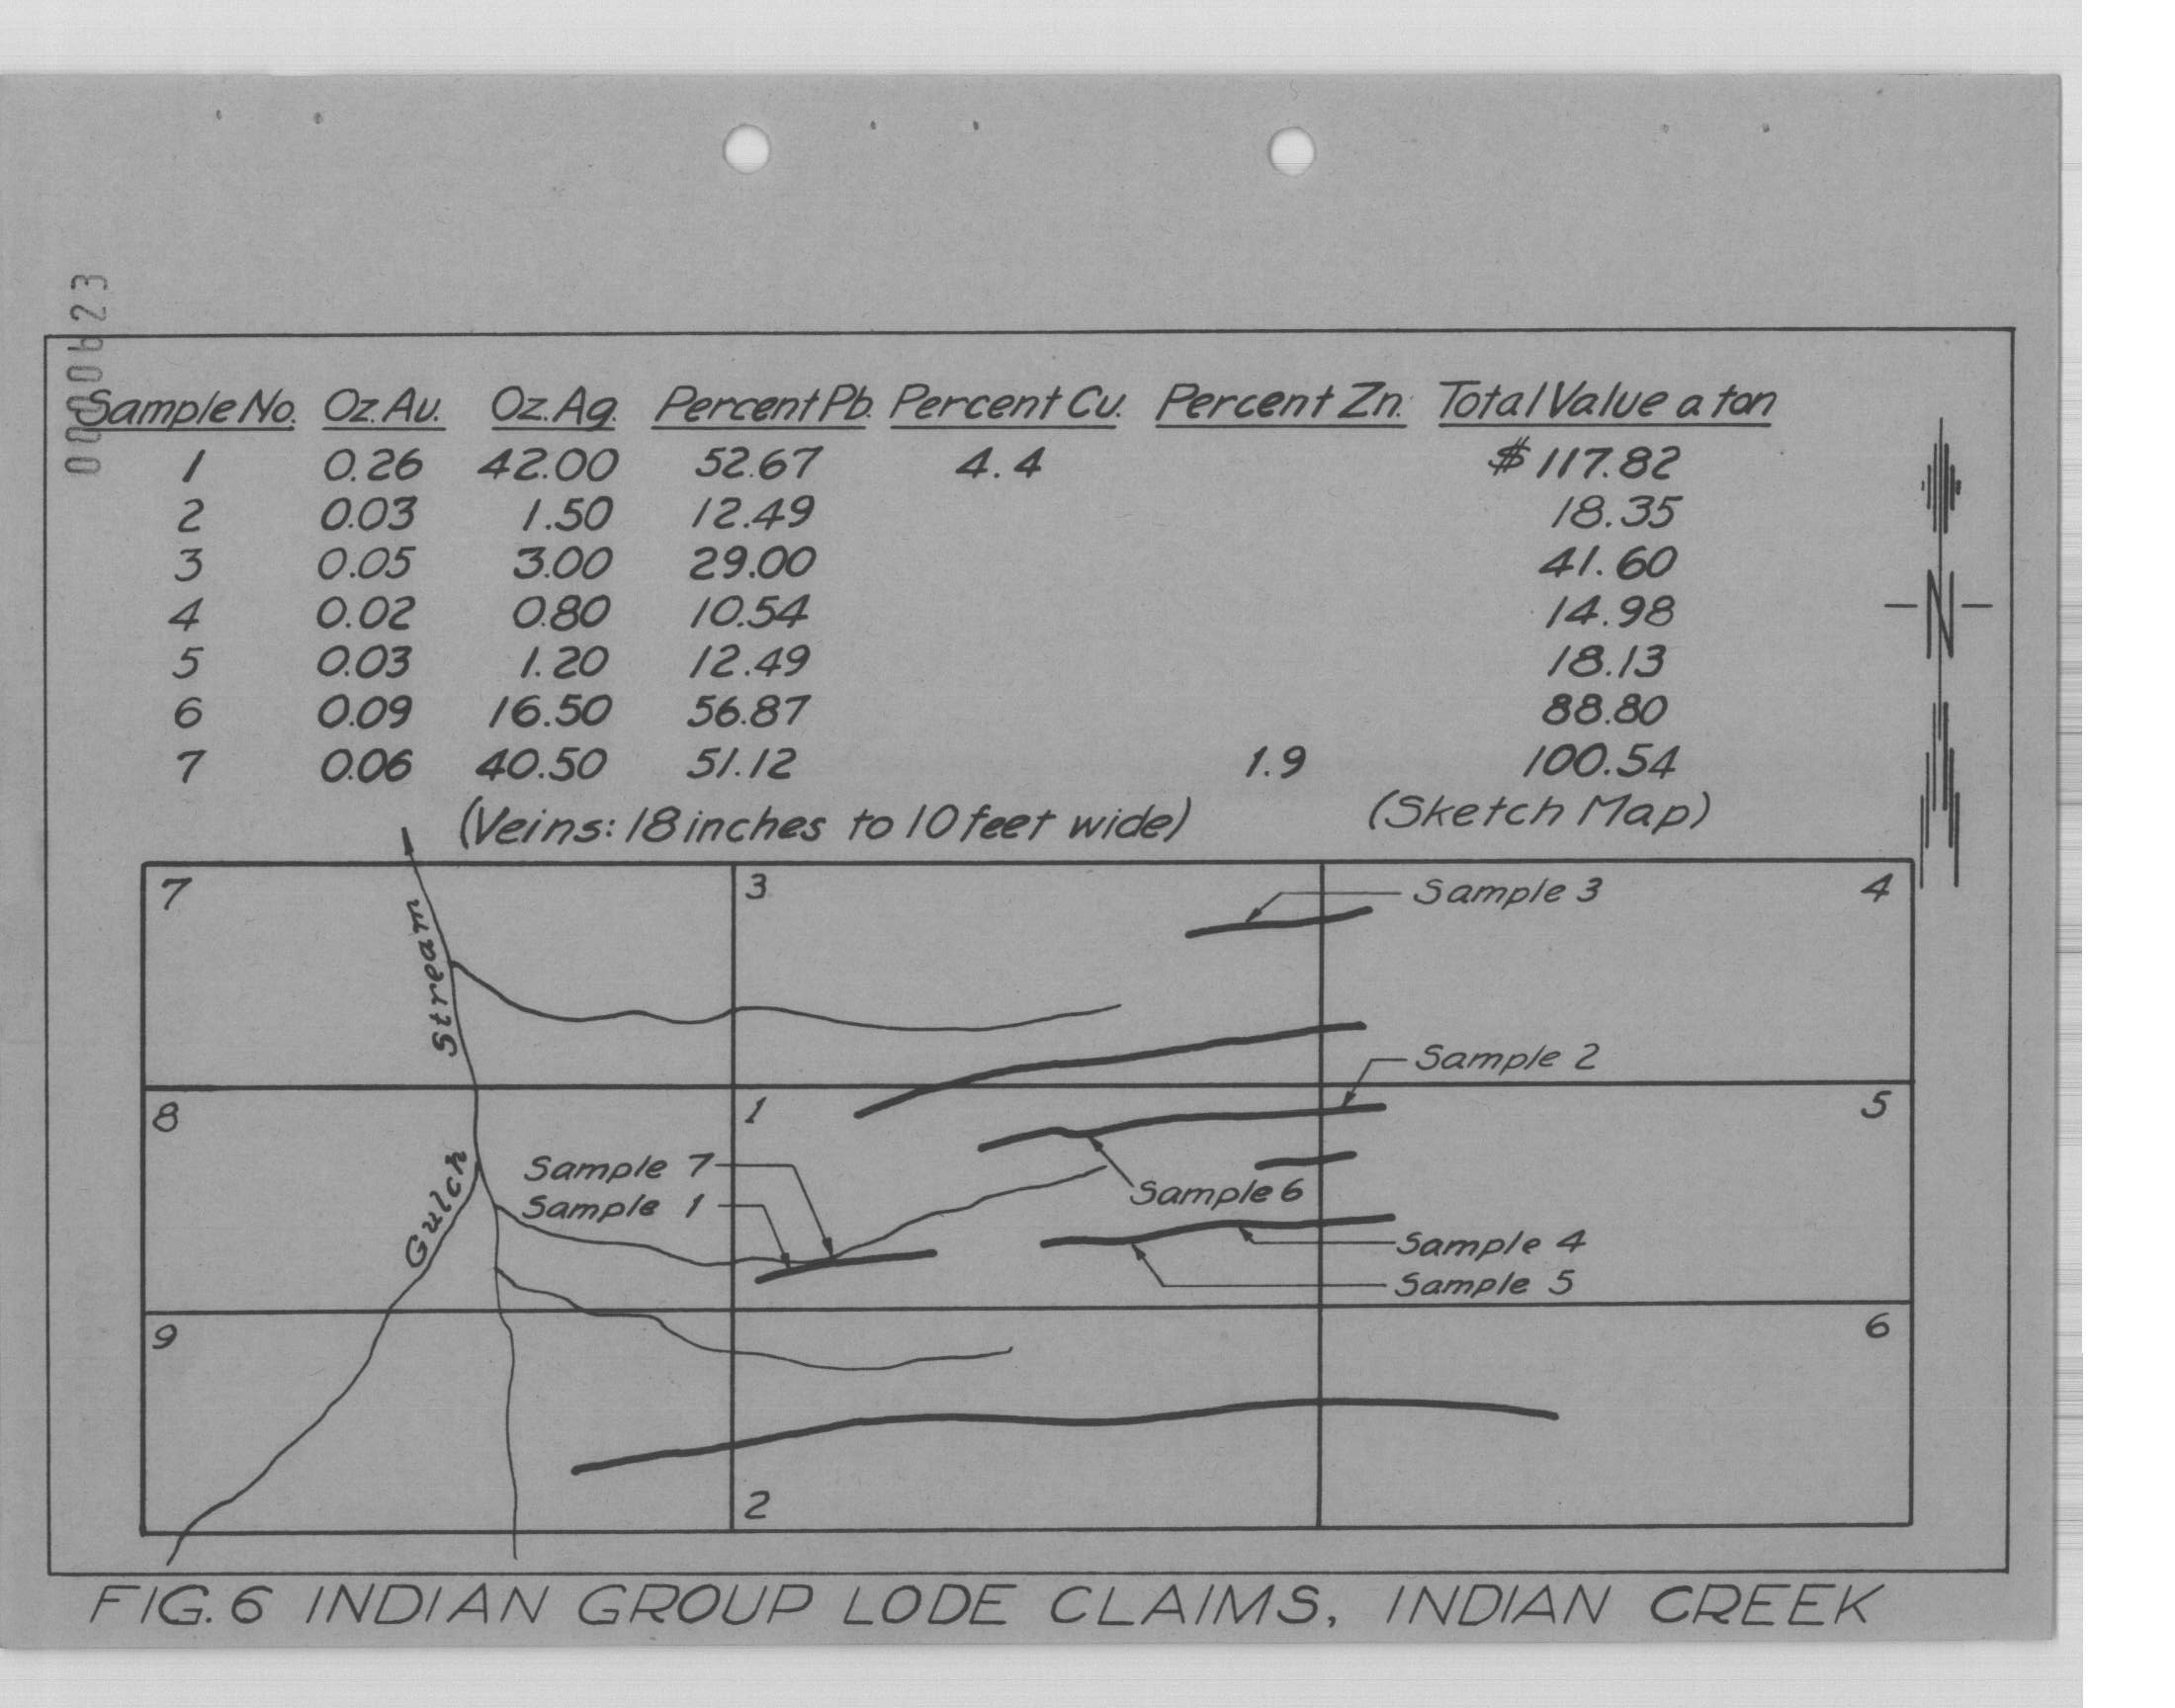 0000623
Sample No. Oz. Au. Oz. Ag. Percent Pb. Percent Cu. Percent Zn. Total Value a ton
1 0.26 42.00 52.67 4.4 $117.82
2 0.03 1.50 12.49 18.35
3 0.05 3.00 29.00 41.60
4 0.02 0.80 10.54 14.98
5 0.03 1.20 12.49 18.13
6 0.09 16.50 56.87 88.80
7 0.06 40.50 51.12 1.9 100.54
(Veins: 18 inches to 10 feet wide) (Sketch Map)
N
7 3 4
Sample 3
Stream
Sample 2
8 1 5
Gulch
Sample 7
Sample 1
Sample 6
Sample 4
Sample 5
9 6
2
FIG. 6 INDIAN GROUP LODE CLAIMS, INDIAN CREEK